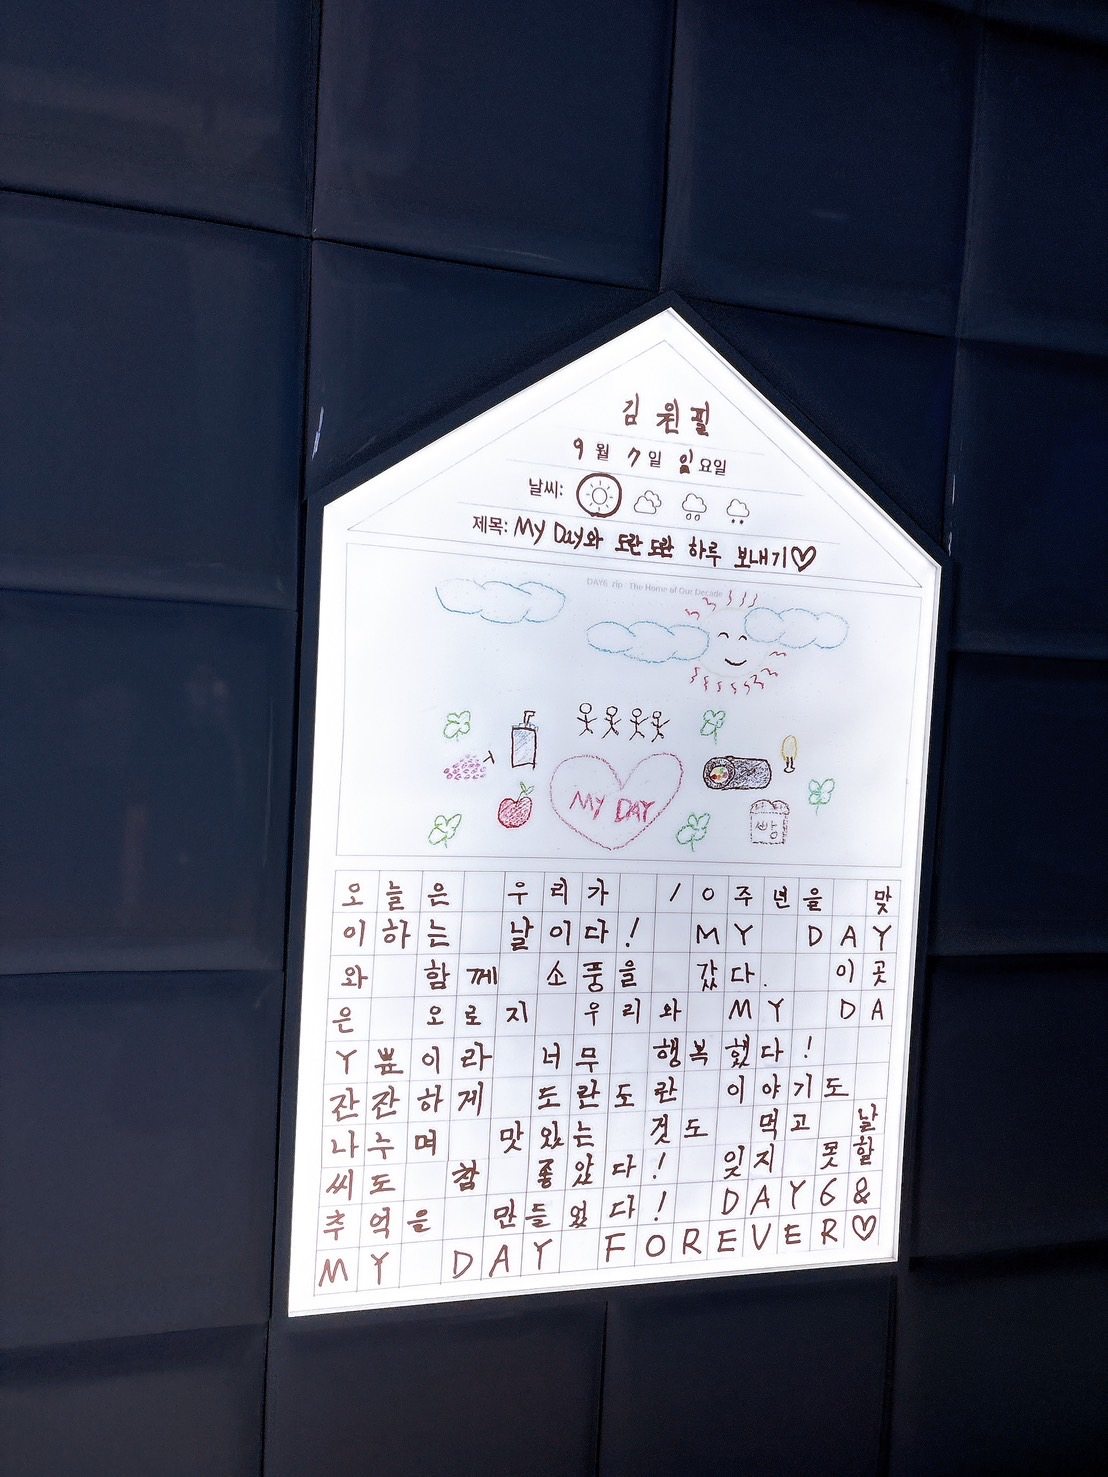 김 원필
9월 7일 일요일
날씨:
제목: My Day와 도란도란 하루 보내기♡
DAY6 .zip : The Home of Our Decade
MY DAY
빵
오늘은 우리가 10주년을 맞
이하는 날이다! MY DAY
와 함께 소풍을 갔다. 이곳
은 오로지 우리와 MY DA
Y뿐이라 너무 행복했다!
잔잔하게 도란도란 이야기도
나누며 맛있는 것도 먹고 날
씨도 참 좋았다! 잊지 못할
추억을 만들었다! DAY6&
MY DAY FOREVER♡